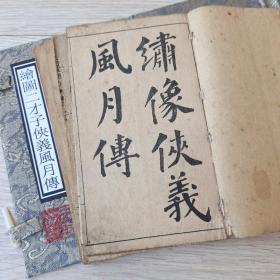 繡像俠義
風月傳
繪圖二才子俠義風月傳